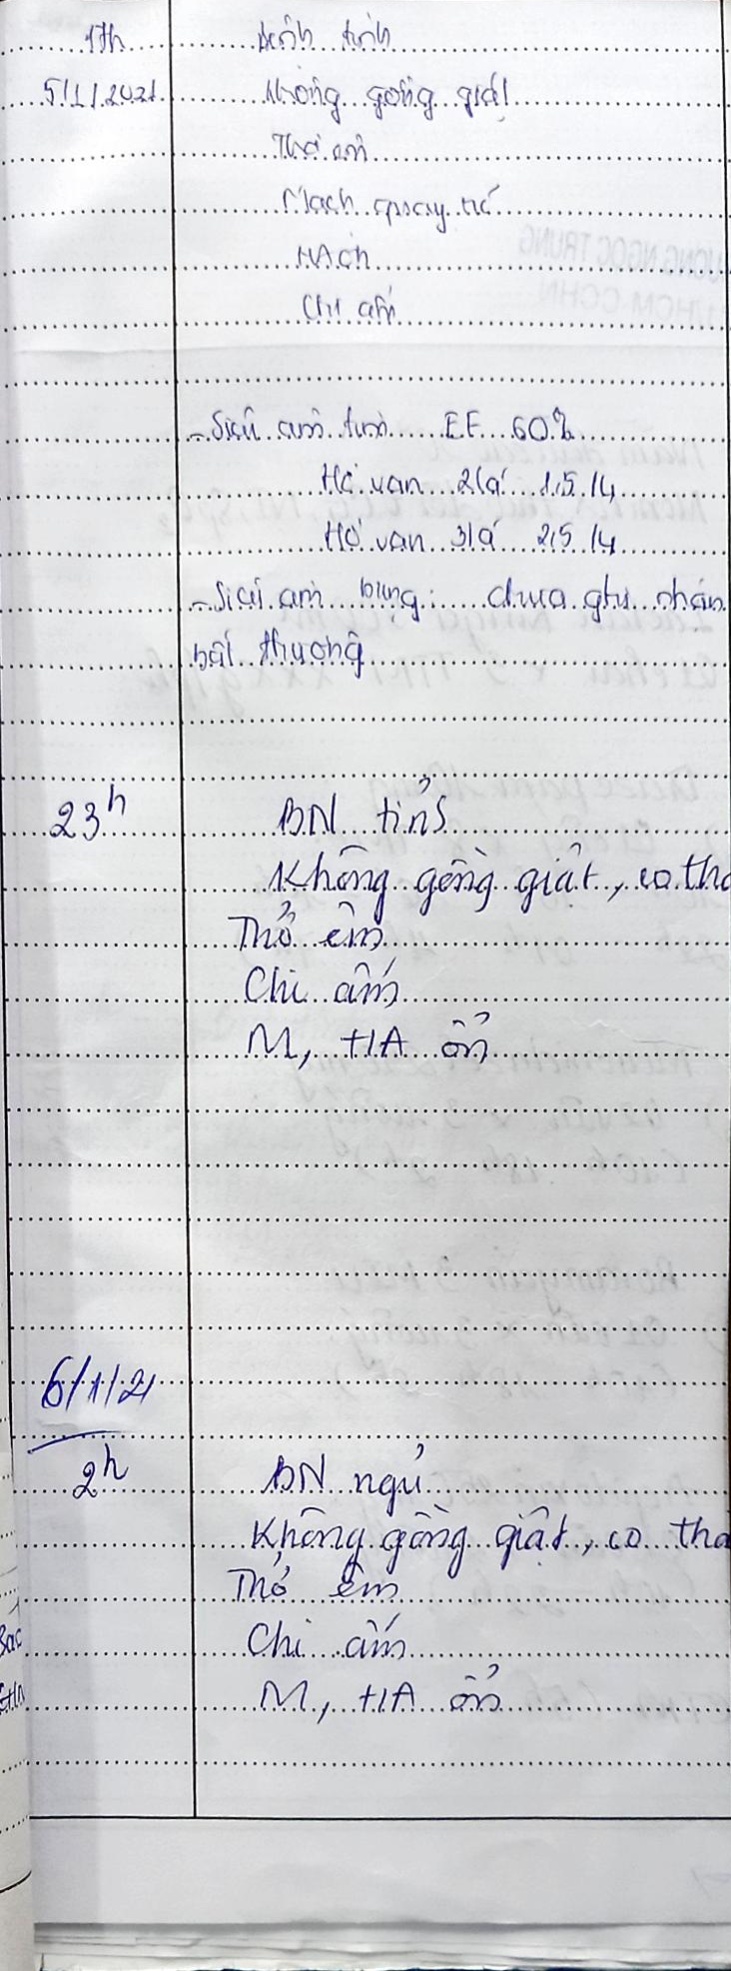 5/1/2021 Không gồng giật
Thở êm
Mạch quay rõ
HA ổn
Chi ấm
- Siêu âm tim EF 60%
Hở van 2 lá 1,5/4
Hở van 3 lá 2,5/4
- Siêu âm bụng: chưa ghi nhận
bất thường
23h BN tỉnh
Không gồng giật, co
Thở êm
Chi ấm
M, HA ổn
6/1/21
2h BN ngủ
Không gồng giật, co
Thở êm
Chi ấm
M, HA ổn